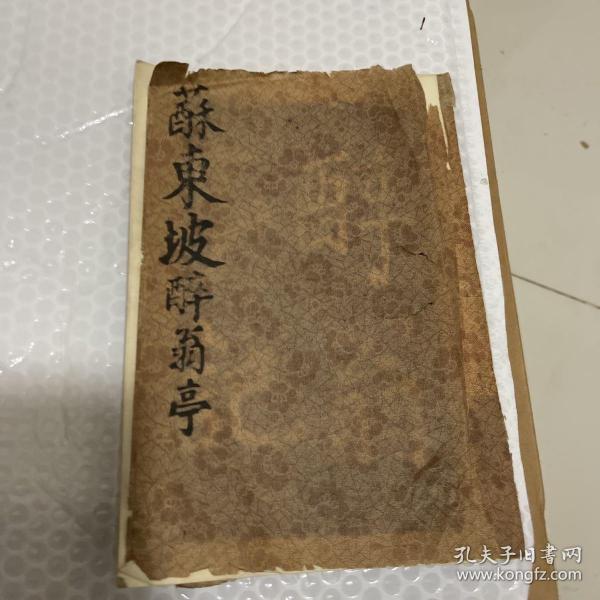 蘇東坡醉翁亭
孔夫子旧書网
www.kongfz.com